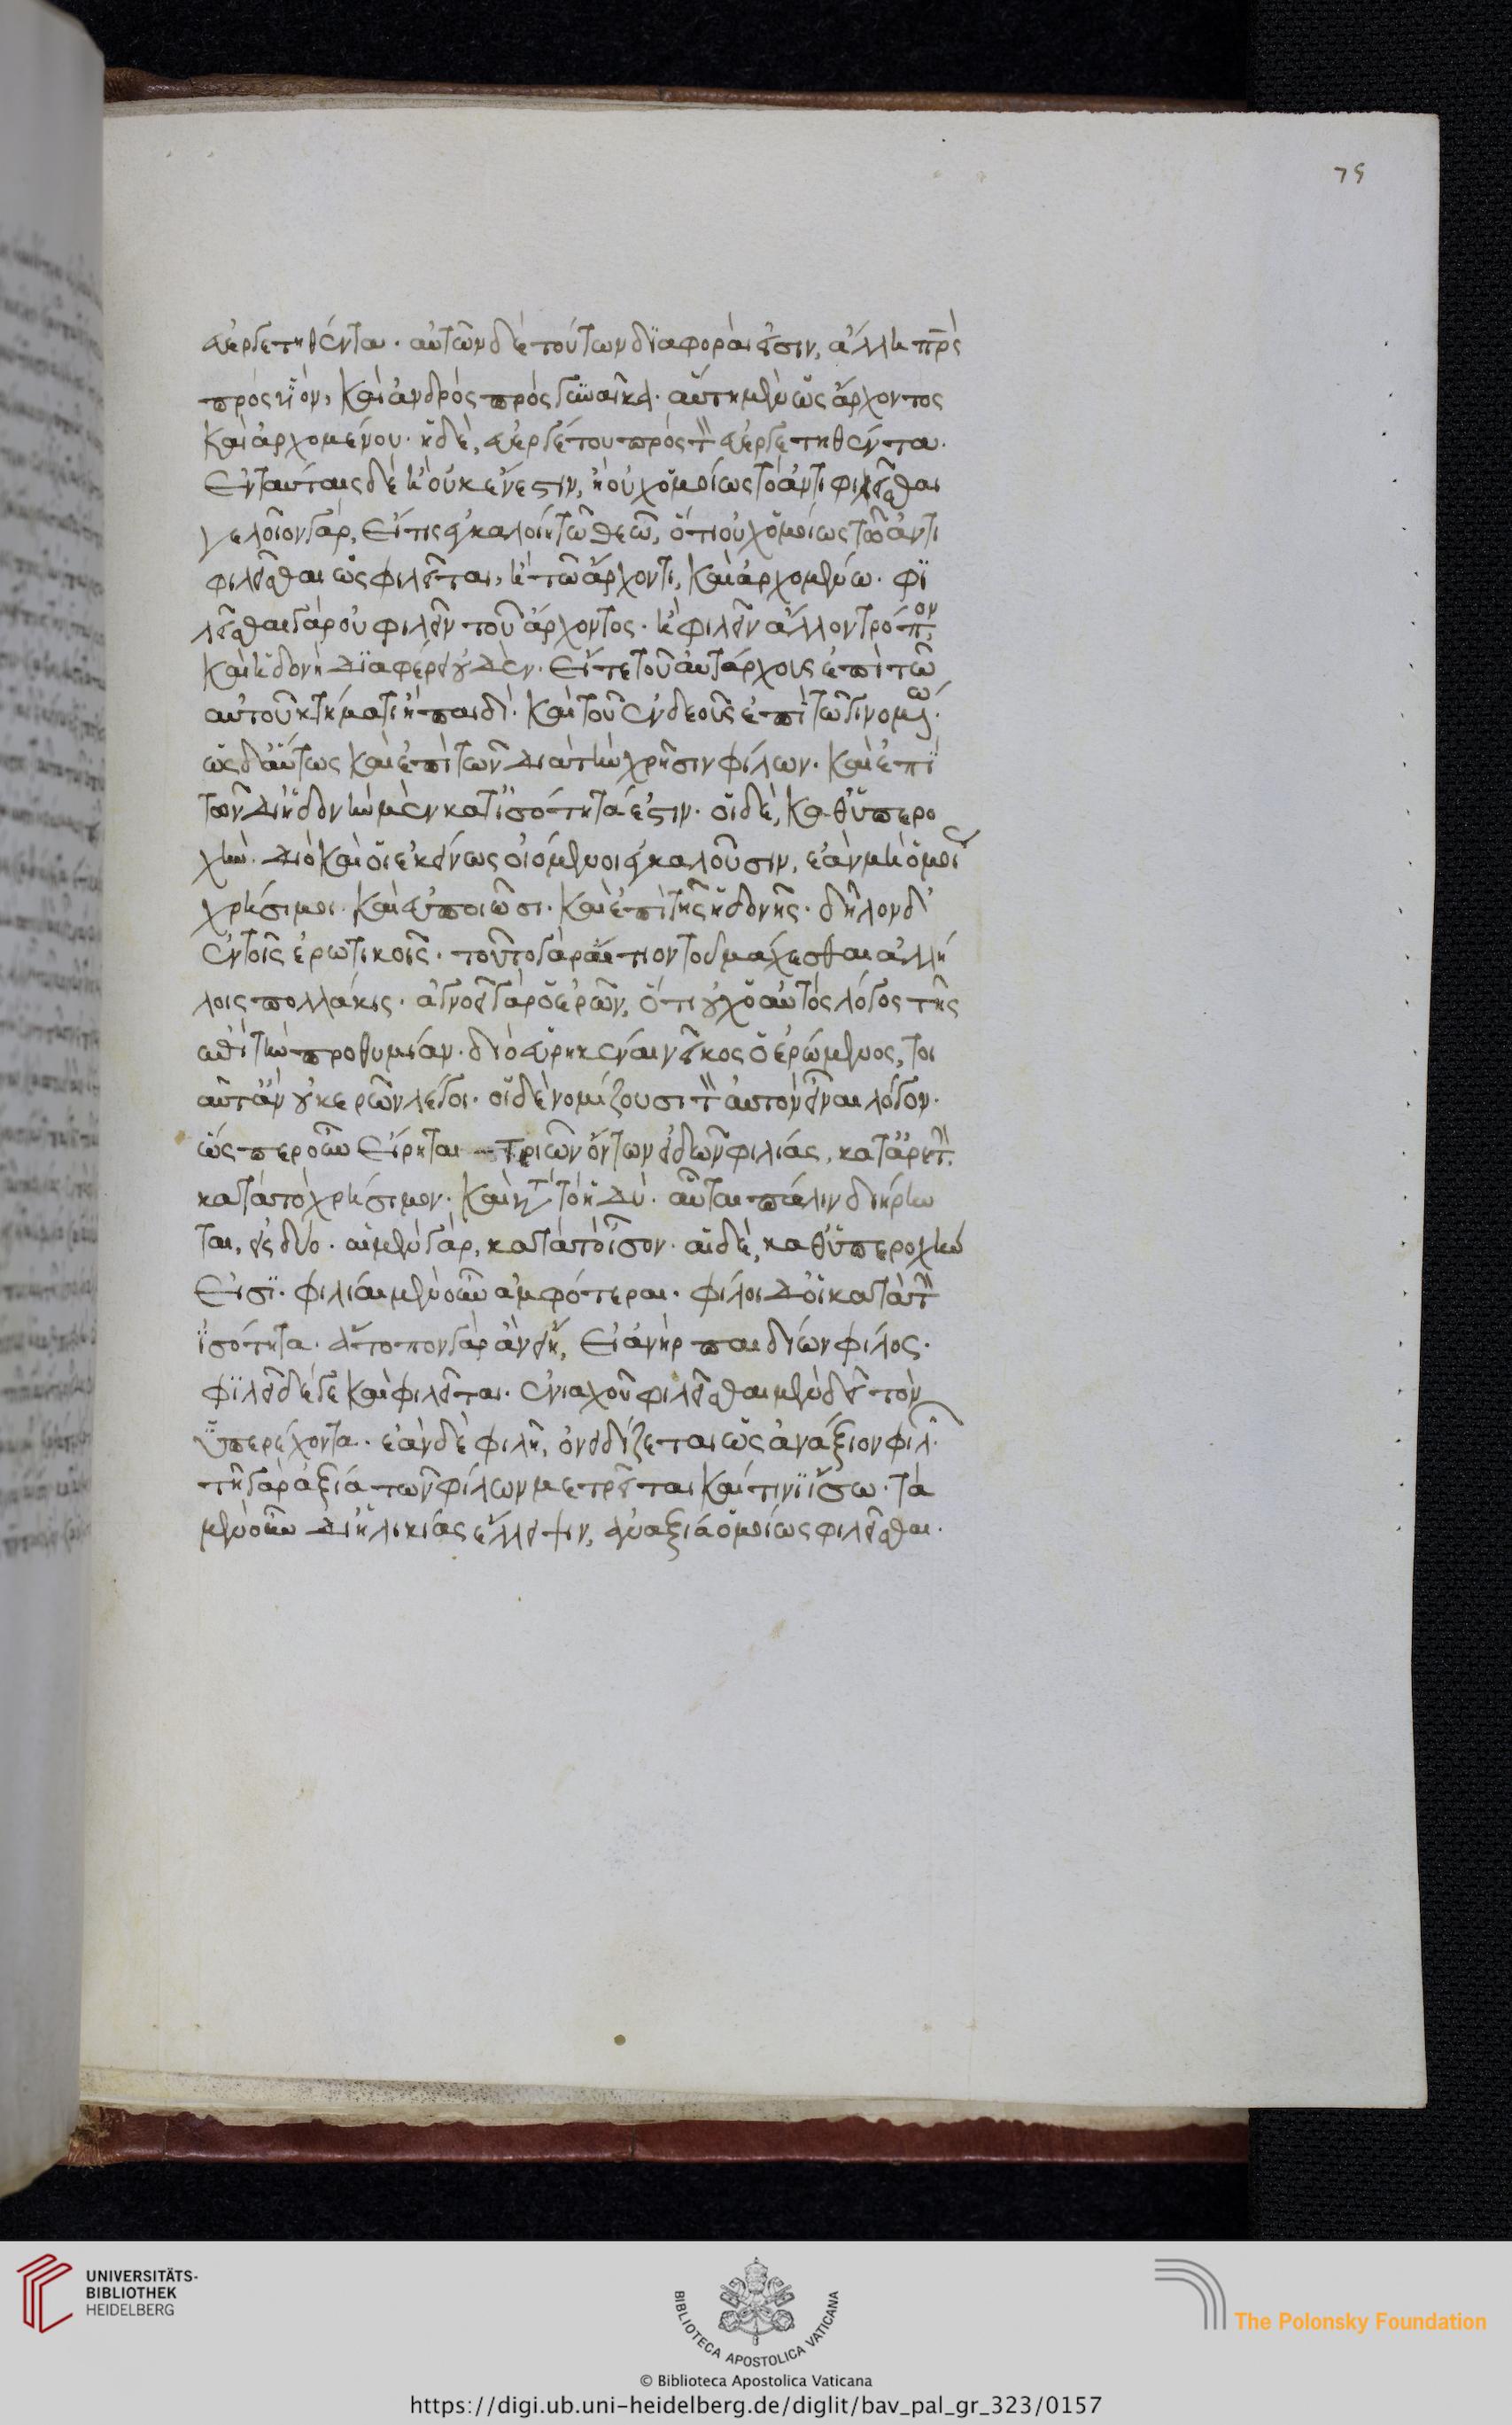 εὐεργετηθέντα. αὐτῶν δὲ τούτων διαφορά εἰσιν, ἄλλη πρς
πρὸς υἱὸν, καὶ ἀνδρὸς πρὸς γυναῖκα. αὕτη μὲν ὡς ἄρχοντος
καὶ ἀρχομένου. ἡ δὲ, εὐεργέτου πρὸς τὸν εὐεργετηθέντα.
Ἐν ταύταις δὲ ἢ οὐκ ἔνεστιν, ἢ οὐχ ὁμοίως τὸ ἀντιφιλεῖσθαι
γελοῖον γὰρ, εἴ τις ἐγκαλοίη τῶ θεῶ, ὅτι οὐχ ὁμοίως τῶ ἀντι
φιλεῖσθαι ὡς φιλεῖται, ἢ τῶ ἄρχοντι, καὶ ἀρχομένω. φι
λεῖσθαι γὰρ οὐ φιλεῖν τοῦ ἄρχοντος. ἢ φιλεῖν ἄλλον τρόπον,
καὶ ἡδονὴ διαφέρει οὐδέν. εἴτε τοῦ αὐτάρχους ἐπὶ τῶ
αὐτοῦ κτήματι ἢ παιδί. καὶ τοῦ ἐνδεοῦς ἐπὶ τῶ γινομένω.
ὡς δ' αὔτως καὶ ἐπὶ τῶν διὰ τὴν χρῆσιν φίλων. καὶ ἐπὶ
τῶν δι' ἡδονὴν μὲν κατ' ἰσότητά ἐστιν. οἱ δὲ, καθ' ὑπερο
χήν. διὸ καὶ οἱ ἐκείνως οἰόμενοι ἐγκαλοῦσιν, ἐὰν μὴ ὁμοίως
χρήσιμοι. καὶ εὐποιῶσι. καὶ ἐπὶ τῆς ἡδονῆς. δῆλον δ'
ἐν τοῖς ἐρωτικοῖς. τοῦτο γὰρ αἴτιον τοῦ μάχεσθαι ἀλλή
λοις πολλάκις. ἀγνοεῖ γὰρ ὁ ἐρῶν, ὅτι οὐχ ὁ αὐτὸς λόγος τῆς
ἐπὶ τὴν προθυμίαν. διὸ εὕρηκέναι νεῖκος ὁ ἐρώμενος, τοι
αῦτ' ἂν οὐκ ἐρῶν λέγοι. οἱ δὲ νομίζουσι τὸν αὐτὸν εἶναι λόγον.
ὥσπερ οὖν εἴρηται Τριῶν ὄντων εἰδῶν φιλίας, κατ' ἀρετήν.
κατὰ τὸ χρήσιμον. καὶ κατὰ τὸ ἡδύ. αὗται πάλιν διήρην
ται, εἰς δύο. αἱ μὲν γὰρ, κατὰ τὸ ἴσον. αἱ δὲ, καθ' ὑπεροχήν
εἰσι. φιλίαι μὲν οὖν ἀμφότεραι. φίλοι δ' οἱ κατὰ τὴν
ἰσότητα. ἄτοπον γὰρ ἂν εἴη, εἰ ἀνὴρ παιδίων φίλος.
φιλεῖ δέ γε καὶ φιλεῖται. ἐνιαχοῦ φιλεῖσθαι μὲν δεῖ τὸν
ὑπερέχοντα. ἐὰν δὲ φιλῇ, ὀνειδίζεται ὡς ἀνάξιον φιλῶν.
τῇ γὰρ ἀξίᾳ τῶν φίλων μετρεῖται καί τινι ἴσω. τὰ
μὲν οὖν δι' ἡλικίας ἔλλειψιν, ἀνάξια ὁμοίως φιλεῖσθαι.
75
UNIVERSITÄTS-
BIBLIOTHEK
HEIDELBERG
BIBLIOTECA APOSTOLICA VATICANA
The Polonsky Foundation
© Biblioteca Apostolica Vaticana
https://digi.ub.uni-heidelberg.de/diglit/bav_pal_gr_323/0157